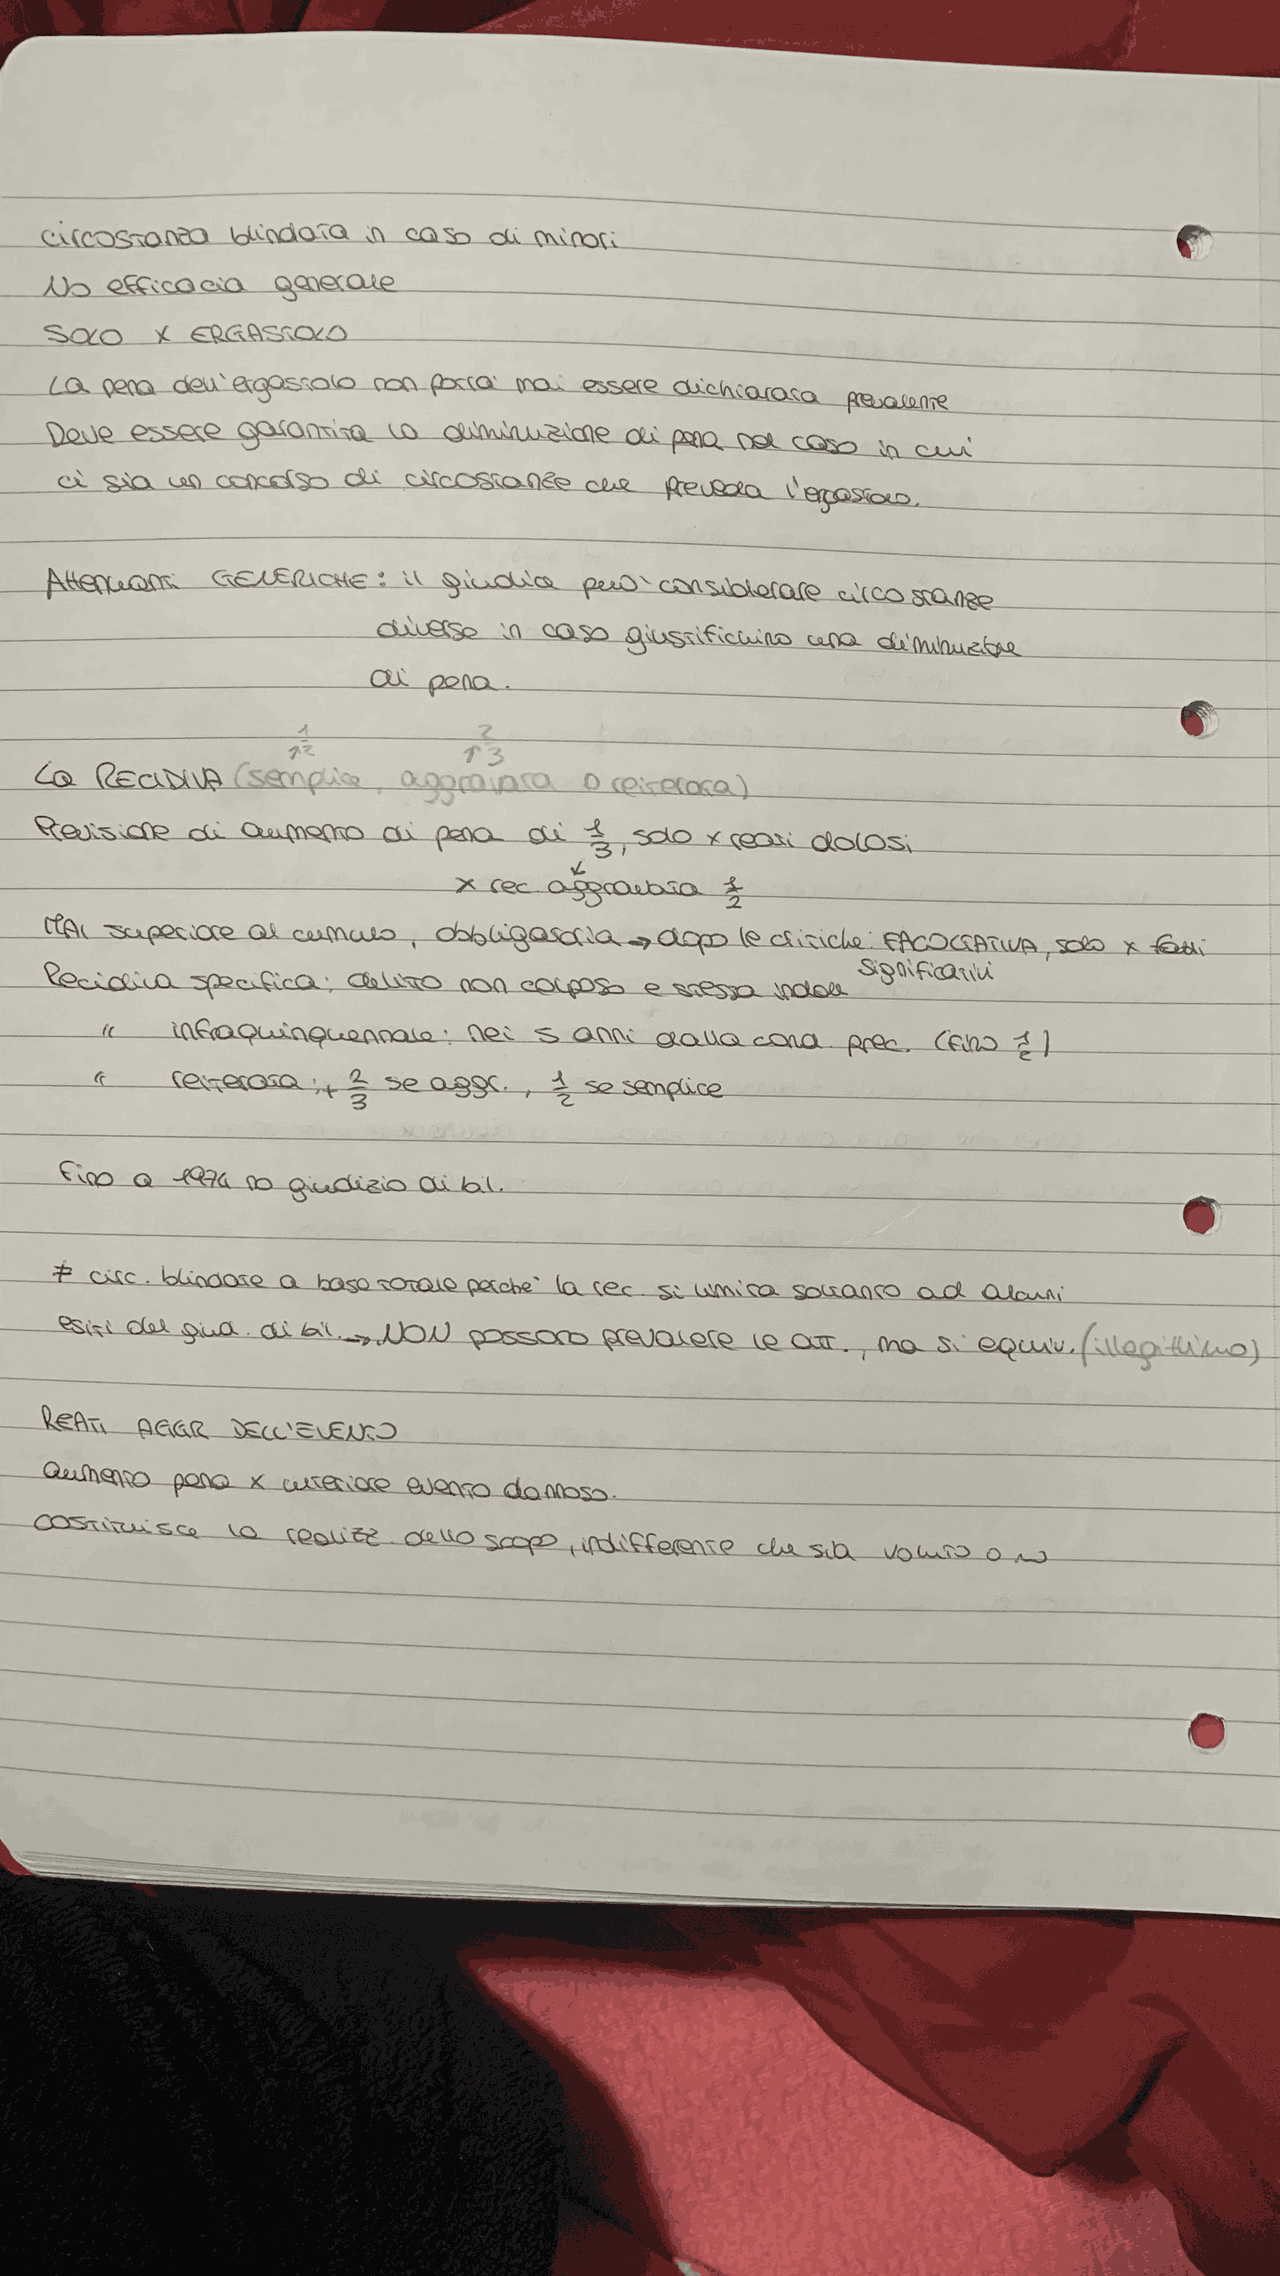 circostanza blindata in caso di minori
No efficacia generale
SOLO x ERGASTOLO
La pena dell'ergastolo non potrà mai essere dichiarata prevalente
Deve essere garantita la diminuzione di pena nel caso in cui
ci sia un concorso di circostanze che preveda l'ergastolo.
Attenuanti GENERICHE: il giudice può considerare circostanze
diverse in caso giustifichino una diminuzione
di pena.
↑ 1/2 ↑ 2/3
La RECIDIVA (semplice, aggravata o reiterata)
Previsione di aumento di pena di 1/3, solo x reati dolosi
↙
x rec. aggravata 1/2
MAI superiore al cumulo, obbligatoria → dopo le critiche: FACOLTATIVA, solo x fatti
significativi
Recidiva specifica: delitto non colposo e stessa indole
" infraquinquennale: nei 5 anni dalla cond. prec. (fino 1/2)
" reiterata: + 2/3 se aggr., 1/2 se semplice
Fino a 1974 no giudizio di bil.
≠ circ. blindate a base totale perché la rec. si limita soltanto ad alcuni
esiti del giud. di bil. → NON possono prevalere le att., ma si equiv. (illegittimo)
REATI AGGR DELL'EVENTO
aumento pena x ulteriore evento dannoso.
costituisce la realizz. dello scopo, indifferente che sia voluto o no